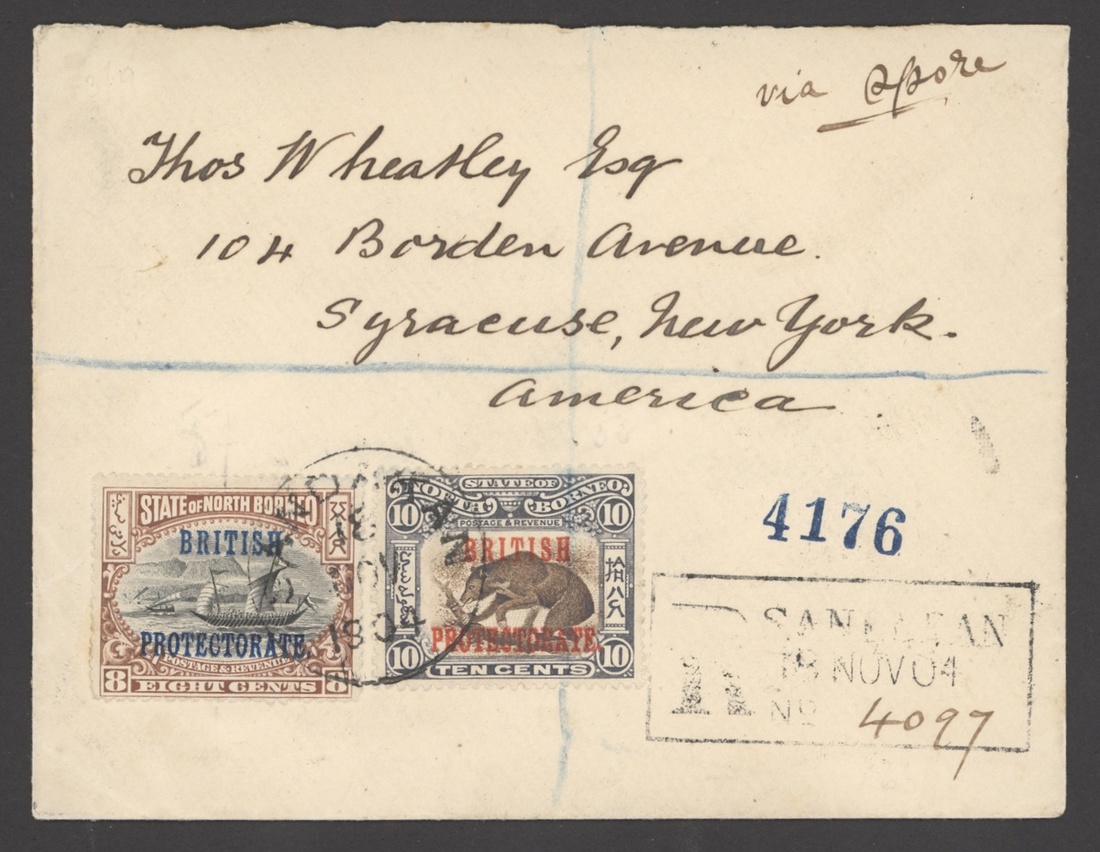 via Spore
Thos Wheatley Esq
104 Borden Avenue.
Syracuse, New York.
America
STATE OF NORTH BORNEO
BRITISH
PROTECTORATE.
POSTAGE & REVENUE
8 EIGHT CENTS 8
STATE OF
NORTH BORNEO
10 10
POSTAGE & REVENUE
BRITISH
PROTECTORATE.
10 10
TEN CENTS
SANDAKAN
18
NOV
1904
4176
R
SANDAKAN
18 NOV 04
No 4097